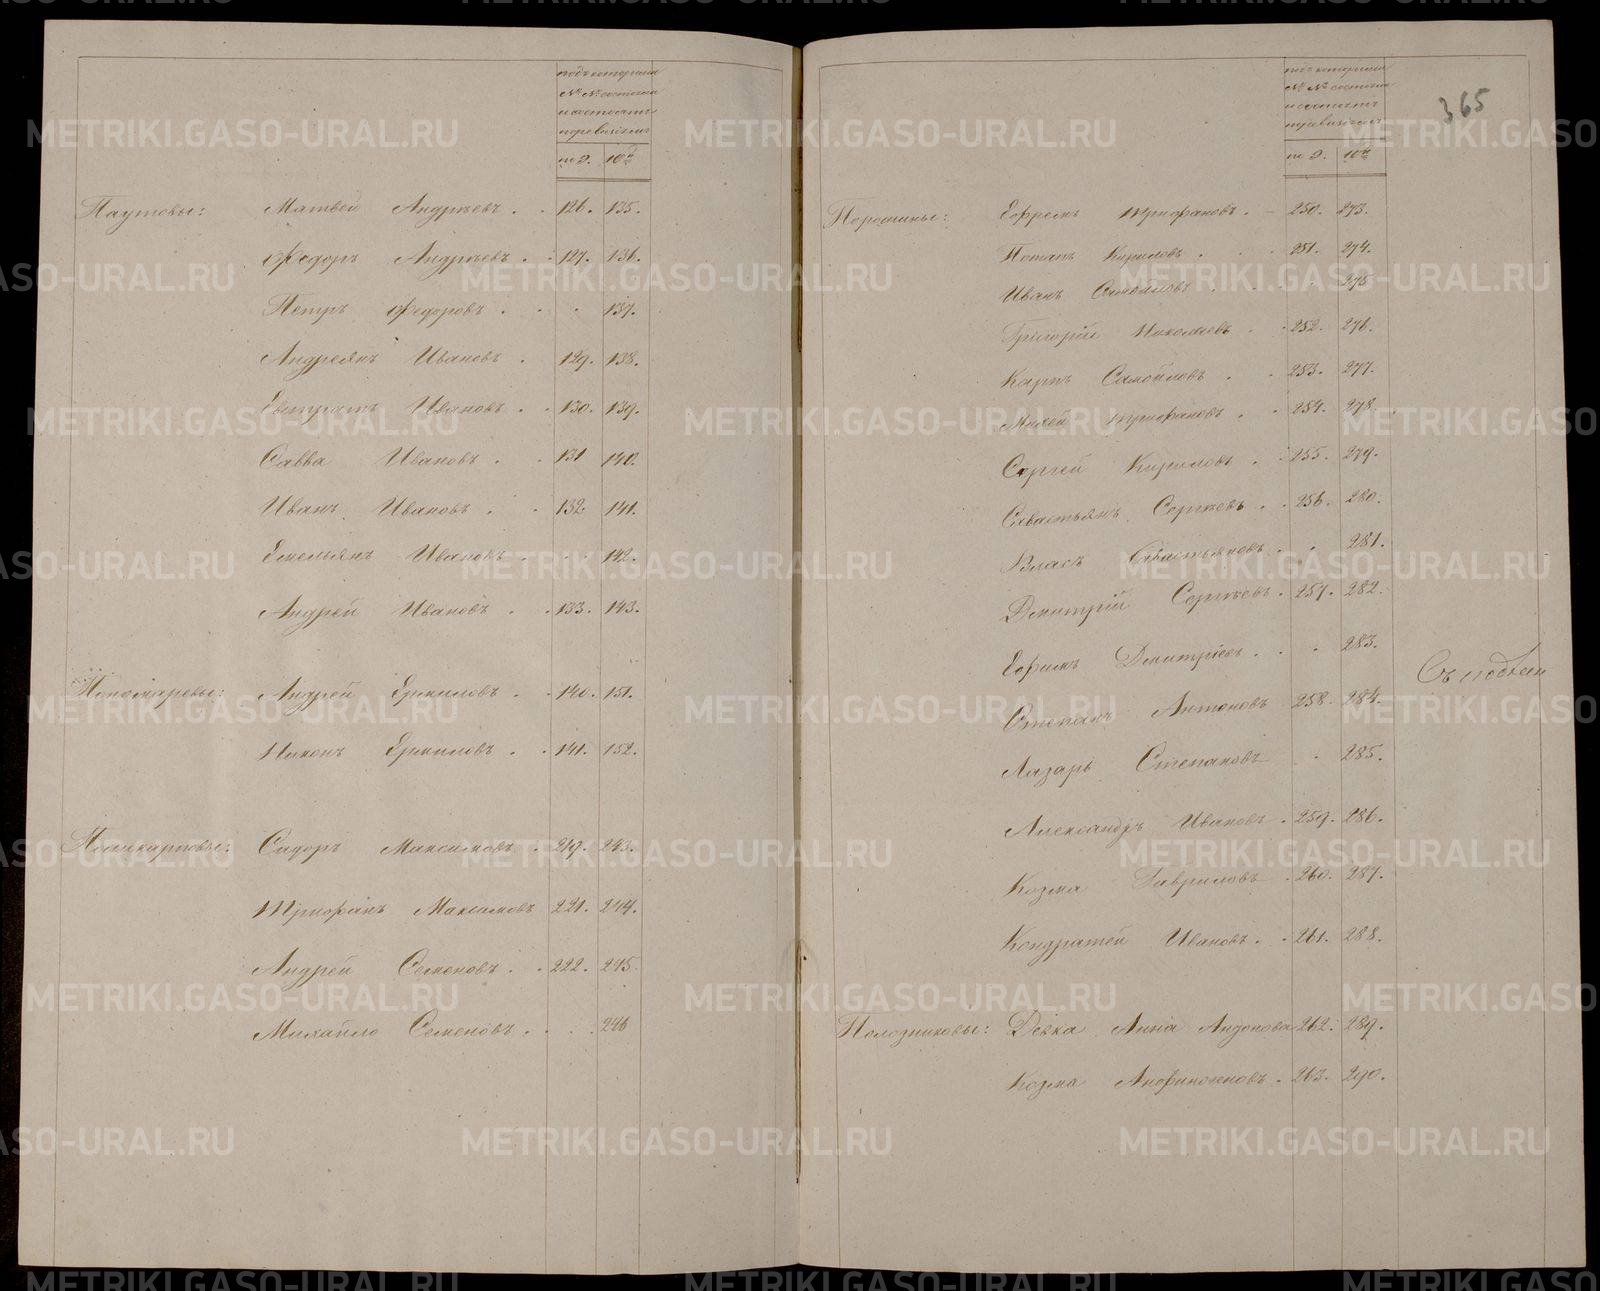 подъ которыми
№№ состояли
и состоятъ
по ревизiямъ
по 9. 10й
Паутовы: Матвей Андреевъ . . 126. 135.
Федоръ Андреевъ . . 127. 136.
Петръ Федоровъ . . . 137.
Андреянъ Ивановъ . 129. 138.
Евстратъ Ивановъ . . 130. 139.
Савва Ивановъ . . 131 140.
Иванъ Ивановъ . . 132. 141.
Емельянъ Ивановъ . . . 142.
Андрей Ивановъ . . 133. 143.
Пономаревы: Андрей Ермиловъ . . 140. 151.
Никонъ Ермиловъ . . 141. 152.
Сидоръ Максимовъ . 219. 243.
Трифанъ Максимовъ 221. 244.
Андрей Семеновъ . . 222. 245.
Михайло Семеновъ . . . . 246
365
подъ которыми
№№ состояли
и состоятъ
по ревизiямъ
по 9. 10й
Порошины: Ефремъ Трифановъ . 250. 273.
Потапъ Кириловъ . . . 251. 274.
Иванъ Самойловъ . . . 275
Григорiй Николаевъ . . 252. 276.
Карпъ Самойловъ . . 253. 277.
Михей Трифановъ . . 254. 278.
Сергей Кириловъ . . 255. 279.
Савастьянъ Сергѣевъ . . 256. 280.
Власъ Савастьяновъ . . 281.
Дмитрiй Сергѣевъ . 257. 282.
Ефимъ Дмитрiевъ . . . 283.
Степанъ Антоновъ 258. 284.
Лазарь Степановъ . 285.
Александръ Ивановъ . 259. 286.
Козма Гавриловъ . 260. 287.
Кондратей Ивановъ . . 261. 288.
Полозниковы: Девка Анна 262. 289.
Козма Анфиногеновъ . 263. 290.